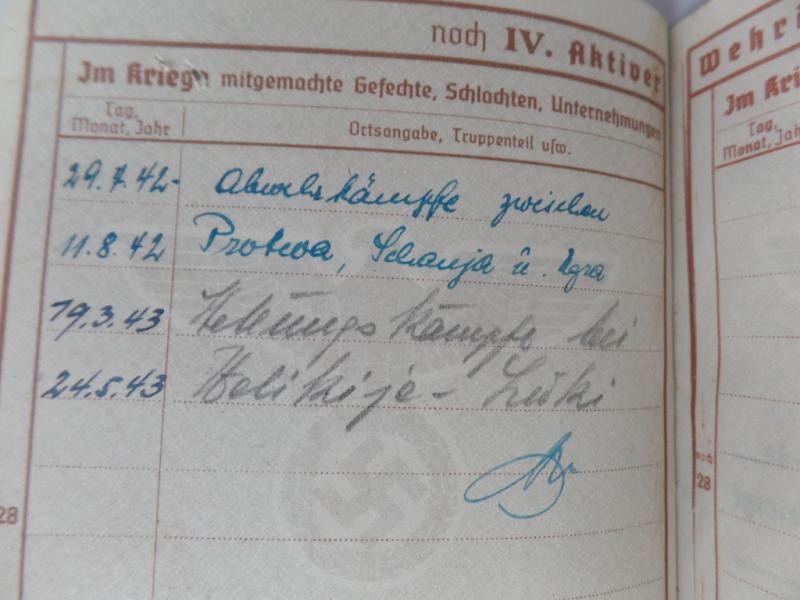 noch IV. Aktiver
Im Kriege mitgemachte Gefechte, Schlachten, Unternehmungen
Tag, Monat, Jahr
Ortsangabe, Truppenteil usw.
29.7.42- Abwehrkämpfe zwischen
11.8.42 Protwa, Schanja u. Ugra
19.3.43 Stellungskämpfe bei
24.5.43 Welikije-Luki
28
Wehr
Im Kri
Tag,
Monat, Jah
noch
28